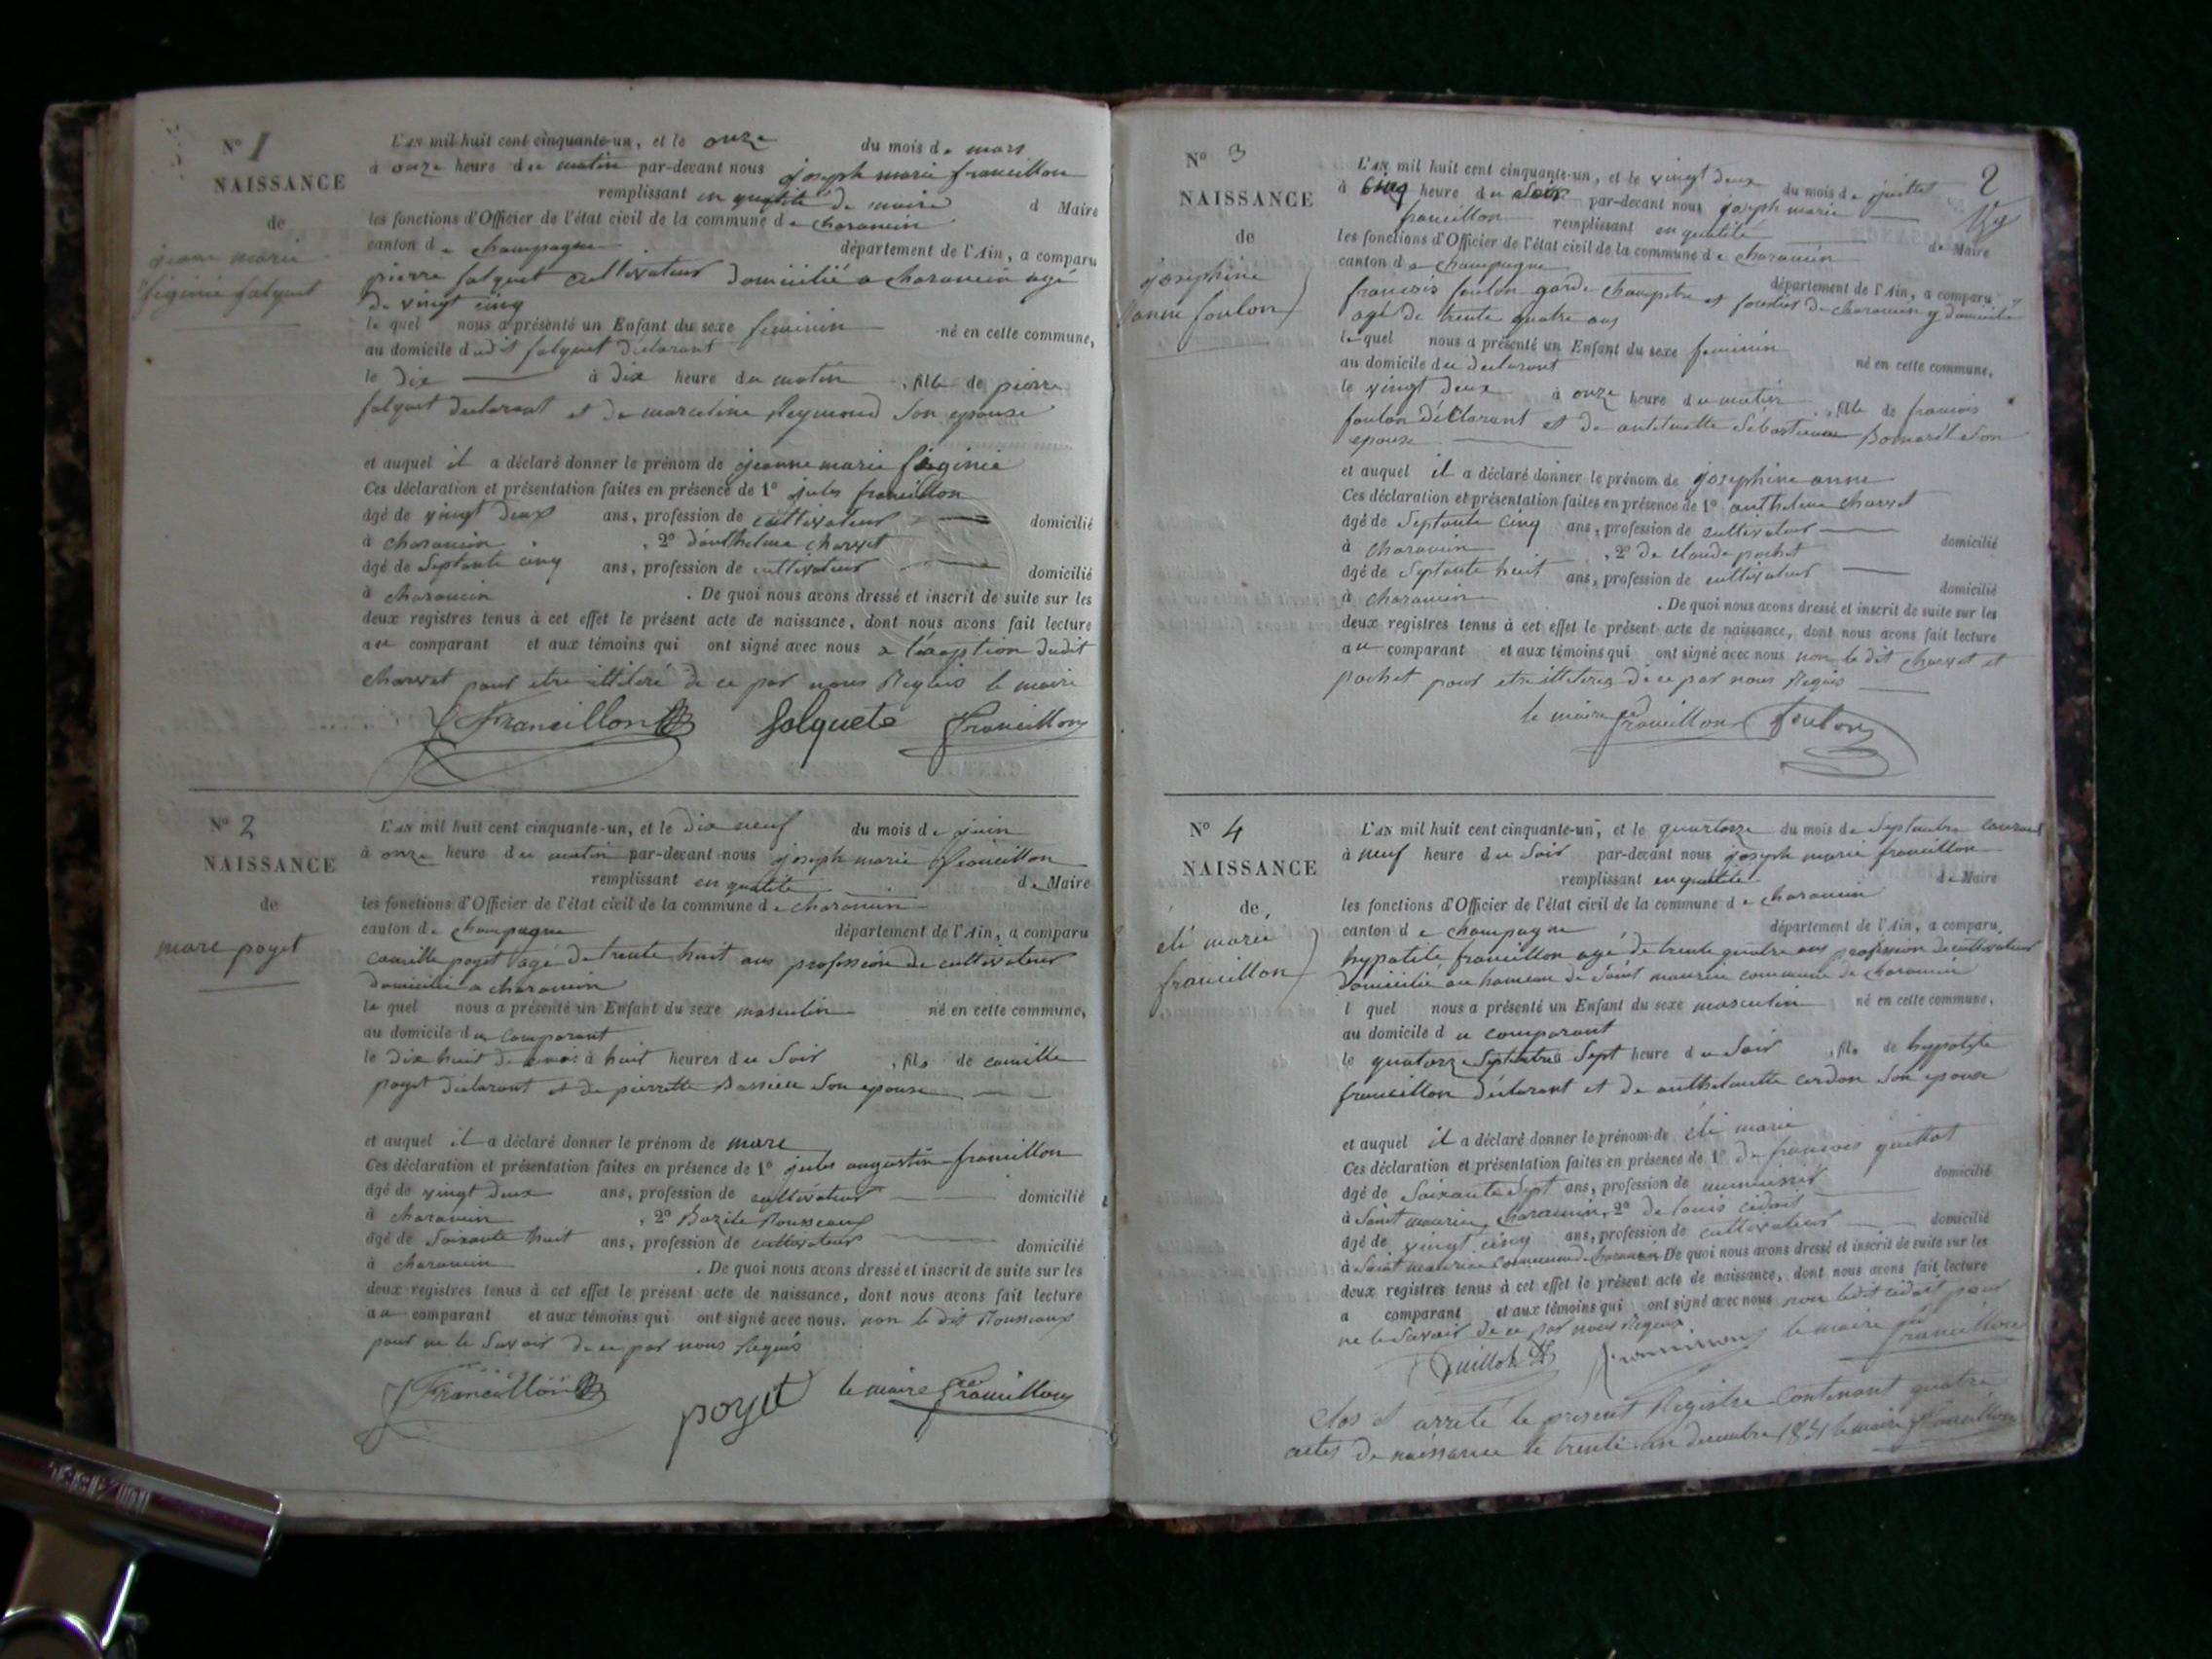 N° 1
NAISSANCE
de
jeanne marie
figinie falquet
L'AN mil huit cent cinquante-un, et le onze du mois de mars
à onze heure du matin par-devant nous joseph marie francillon
remplissant en qualité de maire d Maire
les fonctions d'Officier de l'état civil de la commune de charancin
canton de champagne département de l'Ain, a comparu
pierre falquet cultivateur domicilié a charancin agé
de vingt cinq
le quel nous a présenté un Enfant du sexe feminin né en cette commune,
au domicile dudit falquet déclarant
le dix à dix heure du matin , fille de pierre
falquet declarant et de marceline Reymond son epouse
et auquel il a déclaré donner le prénom de jeanne marie figinie
Ces déclaration et présentation faites en présence de 1° jules francillon
âgé de vingt deux ans, profession de cultivateur domicilié
à charancin , 2° danthelme charvet
âgé de septante cinq ans, profession de cultivateur domicilié
à charancin . De quoi nous avons dressé et inscrit de suite sur les
deux registres tenus à cet effet le présent acte de naissance, dont nous avons fait lecture
au comparant et aux témoins qui ont signé avec nous a l'exeption dudit
charvet pour etre illiteré de ce par nous Requis le maire
J Francillon falquete francillon
N° 2
NAISSANCE
de
marc poget
L'AN mil huit cent cinquante-un, et le dix neuf du mois de juin
à onze heure du matin par-devant nous joseph marie francillon
remplissant en qualité de Maire
les fonctions d'Officier de l'état civil de la commune de charancin
canton de champagne département de l'Ain, a comparu
camille poget agé de trente huit ans profession de cultivateur
domicilié a charancin
le quel nous a présenté un Enfant du sexe masculin né en cette commune,
au domicile du comparant
le dix huit à huit heures du soir , fils de camille
poget déclarant et de pierrette son epouse
et auquel il a déclaré donner le prénom de marc
Ces déclaration et présentation faites en présence de 1° jules augustin francillon
âgé de vingt deux ans, profession de cultivateur domicilié
à charancin , 2° Bazile Rousseaux
âgé de soixante huit ans, profession de cultivateur domicilié
à charancin . De quoi nous avons dressé et inscrit de suite sur les
deux registres tenus à cet effet le présent acte de naissance, dont nous avons fait lecture
au comparant et aux témoins qui ont signé avec nous. non le dit Rousseaux
pour ne le savoir de ce par nous Requis
J Francillon poget le maire francillon
N° 3
NAISSANCE
de
josephine
anne foulon
2
L'AN mil huit cent cinquante-un, et le vingt deux du mois de juillet
à cinq heure du soir par-devant nous joseph marie
francillon remplissant en qualité de Maire
les fonctions d'Officier de l'état civil de la commune de charancin
canton de champagne département de l'Ain, a comparu
francois foulon garde champetre et forestier de charancin y domicilié
agé de trente quatre ans
le quel nous a présenté un Enfant du sexe feminin né en cette commune,
au domicile du declarant
le vingt deux à onze heure du matin , fille de francois
foulon déclarant et de antoinette sébastienne son
epouse
et auquel il a déclaré donner le prénom de josephine anne
Ces déclaration et présentation faites en présence de 1° anthelme charvet
âgé de septante cinq ans, profession de cultivateur domicilié
à charancin , 2° de claude pochet
âgé de septante huit ans, profession de cultivateur domicilié
à charancin . De quoi nous avons dressé et inscrit de suite sur les
deux registres tenus à cet effet le présent acte de naissance, dont nous avons fait lecture
au comparant et aux témoins qui ont signé avec nous non le dit charvet et
pochet pour etre illiteres de ce par nous Requis
le maire francillon foulon
N° 4
NAISSANCE
de
éli marie
francillon
L'AN mil huit cent cinquante-un, et le quartorze du mois de septembre courant
à neuf heure du soir par-devant nous joseph marie francillon
remplissant en qualité de Maire
les fonctions d'Officier de l'état civil de la commune de charancin
canton de champagne département de l'Ain, a comparu
hypolite francillon agé de trente quatre ans profession de cultivateur
domicilié au hameau de saint maurice commune de charancin
l quel nous a présenté un Enfant du sexe masculin né en cette commune,
au domicile du comparant
le quatorze septembre sept heure du soir , fils de hypolyte
francillon déclarant et de anthelmette cerdon son epouse
et auquel il a déclaré donner le prénom de éli marie
Ces déclaration et présentation faites en présence de 1° de francois guillot
âgé de soixante sept ans, profession de menuisier domicilié
à saint maurice charancin, 2° de louis
âgé de vingt cinq ans, profession de cultivateur domicilié
à saint maurice commune de charancin De quoi nous avons dressé et inscrit de suite sur les
deux registres tenus à cet effet le présent acte de naissance, dont nous avons fait lecture
a comparant et aux témoins qui ont signé avec nous non ledit pour
ne le savoir de ce par nous Requis
Guillot francillon le maire francillon
Clos et arreté le present Registre contenant quatre
actes de naissance le trente un decembre 1851 le maire francillon